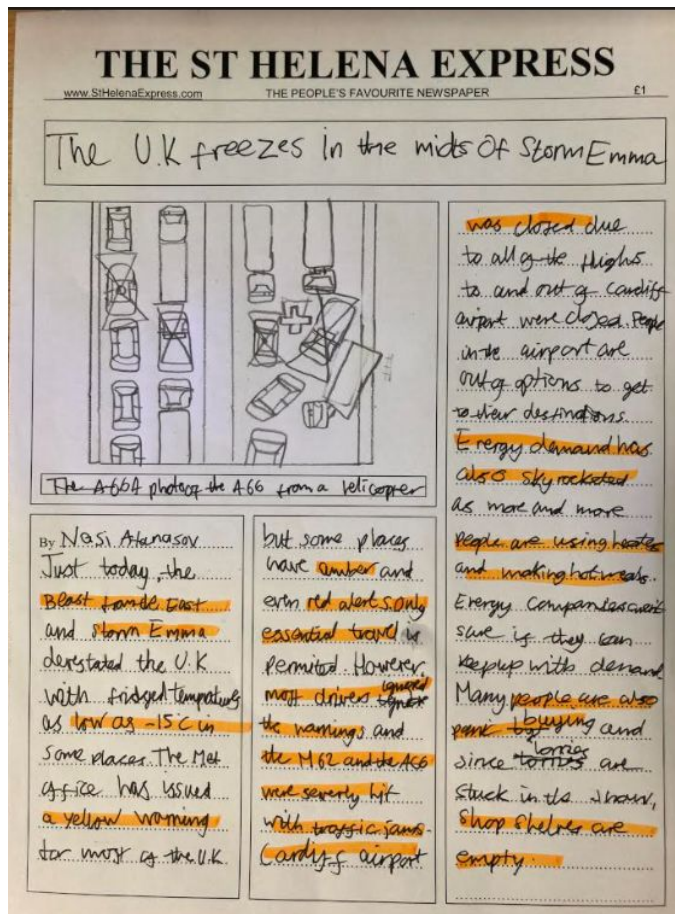 THE ST HELENA EXPRESS
www.StHelenaExpress.com THE PEOPLE'S FAVOURITE NEWSPAPER £1
The U.K freezes in the midts Of Storm Emma
The A66A photo of the A66 from a Helicopter
By Nasi Atanasov
Just today, the
Beast from the East
and storm Emma
devestated the U.K
with fridged temperatures
as low as -15c in
some places. The Met
office has issued
a yellow warning
for most of the U.K
but some places
have amber and
even red alerts. Only
essential travel is
permited. However
most drivers ignored
the warnings and
the M62 and the A66
were severly hit
with traffic jams.
Cardiff airport
was closed due
to all of the flighs
to and out of Cardiff
airport were closed. People
in the airport are
out of options to get
to their destinations.
Energy demand has
also skyrocketed
as more and more
people are using heaters
and making hot meals.
Energy Companies arent
sure if they can
keep up with demand.
Many people are also
panic buying and
since lorries are
stuck in the snow,
Shop shelves are
empty.